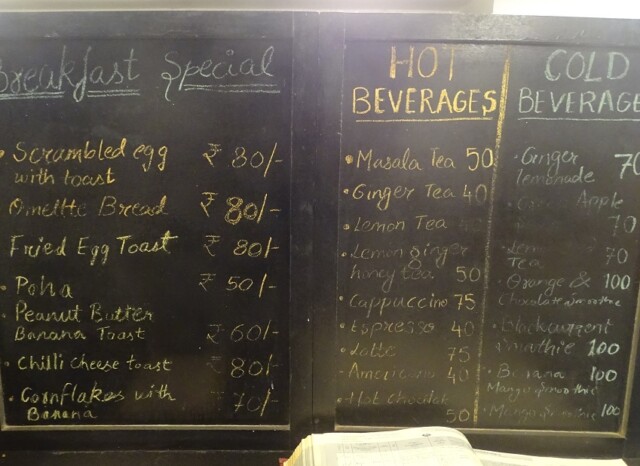 Breakfast Special
• Scrambled egg ₹ 80/-
with toast
Omeltte Bread ₹ 80/-
Fried Egg Toast ₹ 80/-
• Poha ₹ 50/-
• Peanut Butter
Banana Toast ₹ 60/-
• Chilli cheese toast ₹ 80/-
• Cornflakes with ₹ 70/-
Banana
HOT
BEVERAGES
• Masala Tea 50
• Ginger Tea 40
• Lemon Tea
• Lemon ginger
honey tea 50
• Cappuccino 75
• Espresso 40
• Latte 75
• Americano 40
• Hot
50
COLD
BEVERAGE
• Ginger 70
lemonade
Apple
70
Tea 70
• Orange & 100
Chocolate smoothie
• Blackcurrent
Smoothie 100
• Banana 100
Mango smoothie
• Mango smoothie 100